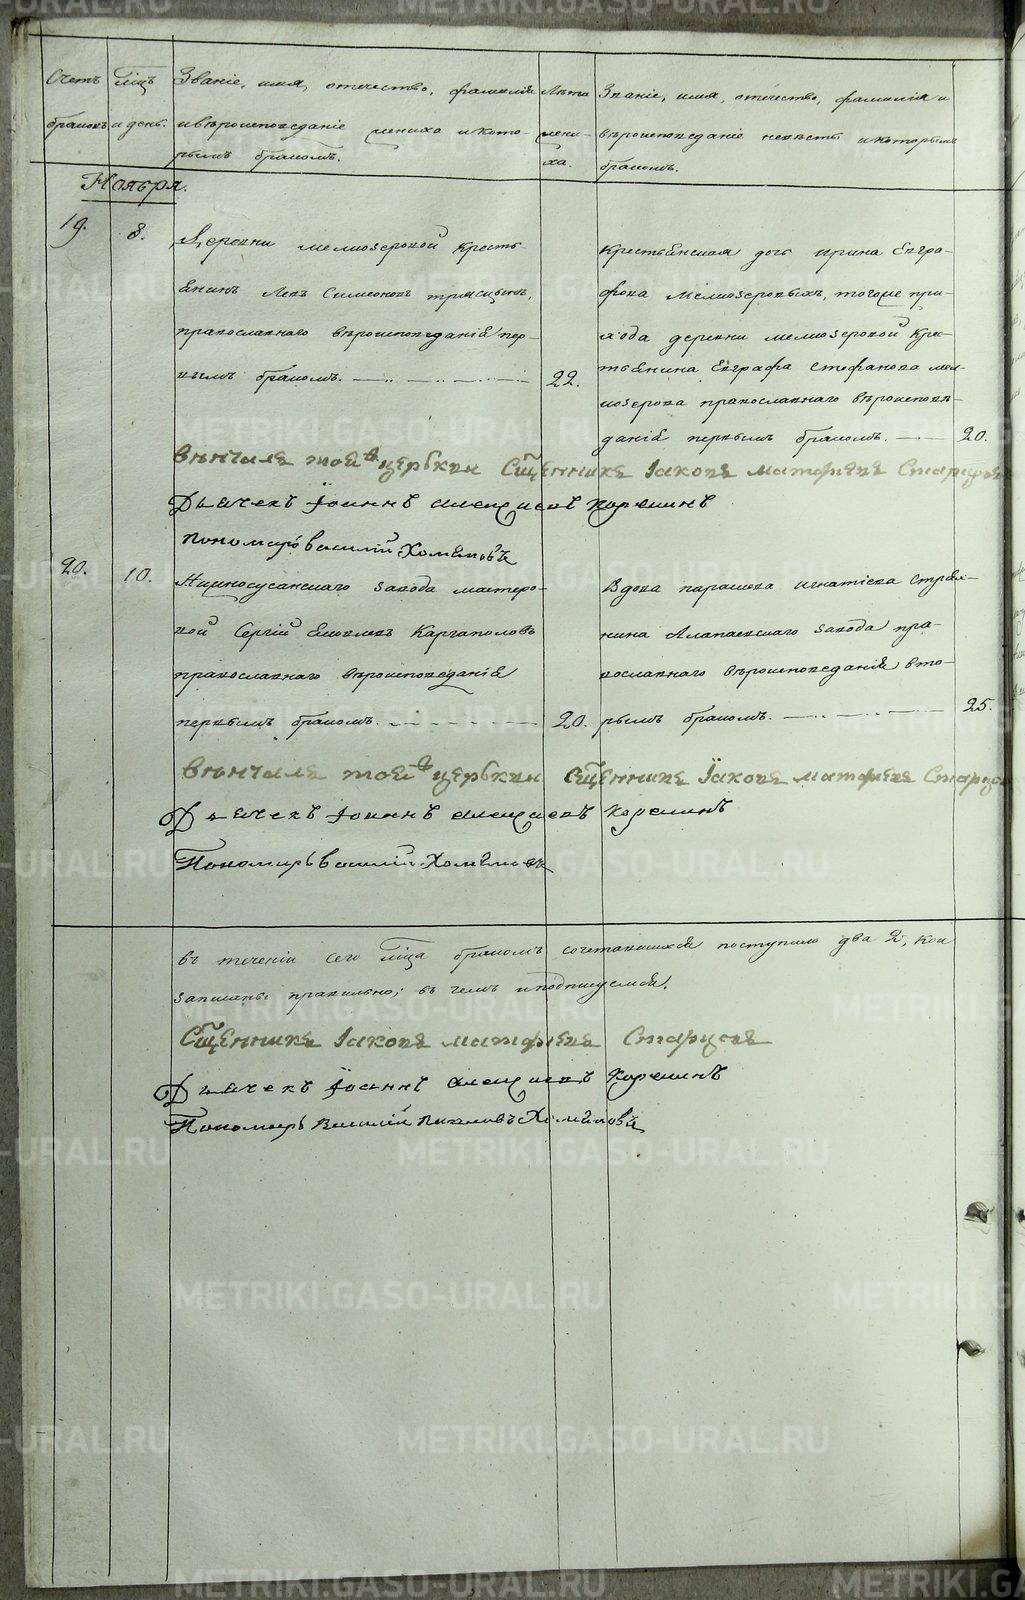 Счетъ браковъ
Мѣцъ и день.
Званіе, имя, отечество, фамилія
и вѣроисповѣданіе жениха и кото-
рымъ бракомъ.
Лѣта жени-
ха.
Званіе, имя, отечество, фамилія и
вѣроисповѣданіе невѣсты и которымъ
бракомъ.
Ноября.
19.
8.
Деревни мелкозеровой кресть
янинъ Левъ Симеоновъ
православнаго вѣроисповѣданія пер-
вымъ бракомъ.
22.
крестьянская дочь ирина Евгра-
фова мелкозеровыхъ, тогоже при-
хода деревни мелкозеровой кре-
стьянина Евграфа Стефанова мел-
козерова православнаго вѣроисповѣ-
данія первымъ бракомъ.
20.
вѣнчалъ тоей церькви Сщенникъ Іаковъ матфѣевъ Старцовъ
Дьячекъ Іоаннъ алексѣевъ
пономарь василій Хомяковъ
20.
10.
Нижносусанскаго завода мастеро-
вой Сергій Яковлевъ Каргаполовъ
православнаго вѣроисповѣданія
первымъ бракомъ.
20.
Вдова параскева игнатіева
Алапаевскаго завода пра-
вославнаго вѣроисповѣданія вто-
рымъ бракомъ.
25.
вѣнчалъ тоей церькви Сщенникъ Іаковъ матфѣевъ Старцовъ
Дьячекъ Іоаннъ алексѣевъ
Пономарь василій Хомяковъ
въ теченіи сего мѣца бракомъ сочетавшихся поступило два 2, кои
записаны правильно; въ чемъ и подписуемся.
Сщенникъ Іаковъ матфѣевъ Старцовъ
Дьячекъ Іоаннъ алексѣевъ
Пономарь Василій Хомяковъ
METRIKI.GASO-URAL.RU